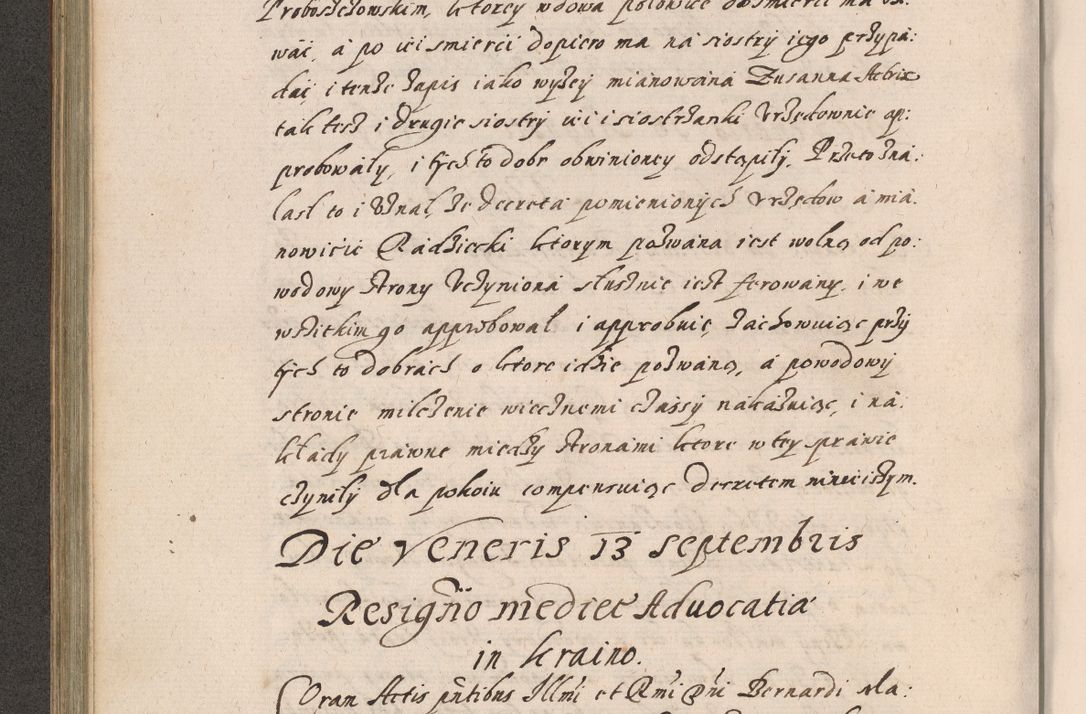 Proboszczowskim, ktorey wdowa połowice do smierci ma
wać, a po iei smierci dopiero ma na siostry iego przypa:
dać, i tenże zapis iako wyżey mianowana Zusanna Actrix
tak tesz i drugie siostry iei i siostrzanki Urzędownie ap:
probowały, i tych to dobr obwinioney odstąpiły, Przeto zna:
lasł to i Uznał, że decreta pomienionych Urzędow a mia:
nowicie Radziecki ktorym pozwana iest wolną od po:
wodowy strony Uczyniona słusznie iest ferowany, i we
wszitkim go approbował i approbuię, zachowuiąc przy
tych to dobrach o ktore idzie pozwaną, a powodowy
stronie milczenie wiecznemi czassy nakazuiąc, i na:
kłady prawne między stronami ktore w tey sprawie
czyniły dla pokoiu compensuiąc decretem ninieiszym.
Die Veneris 13 septembris
Resigno medietĕ Advocatia
in Kraino.
Coram Actis pntibus Illmi et Rmi Dni Bernardi Ma: